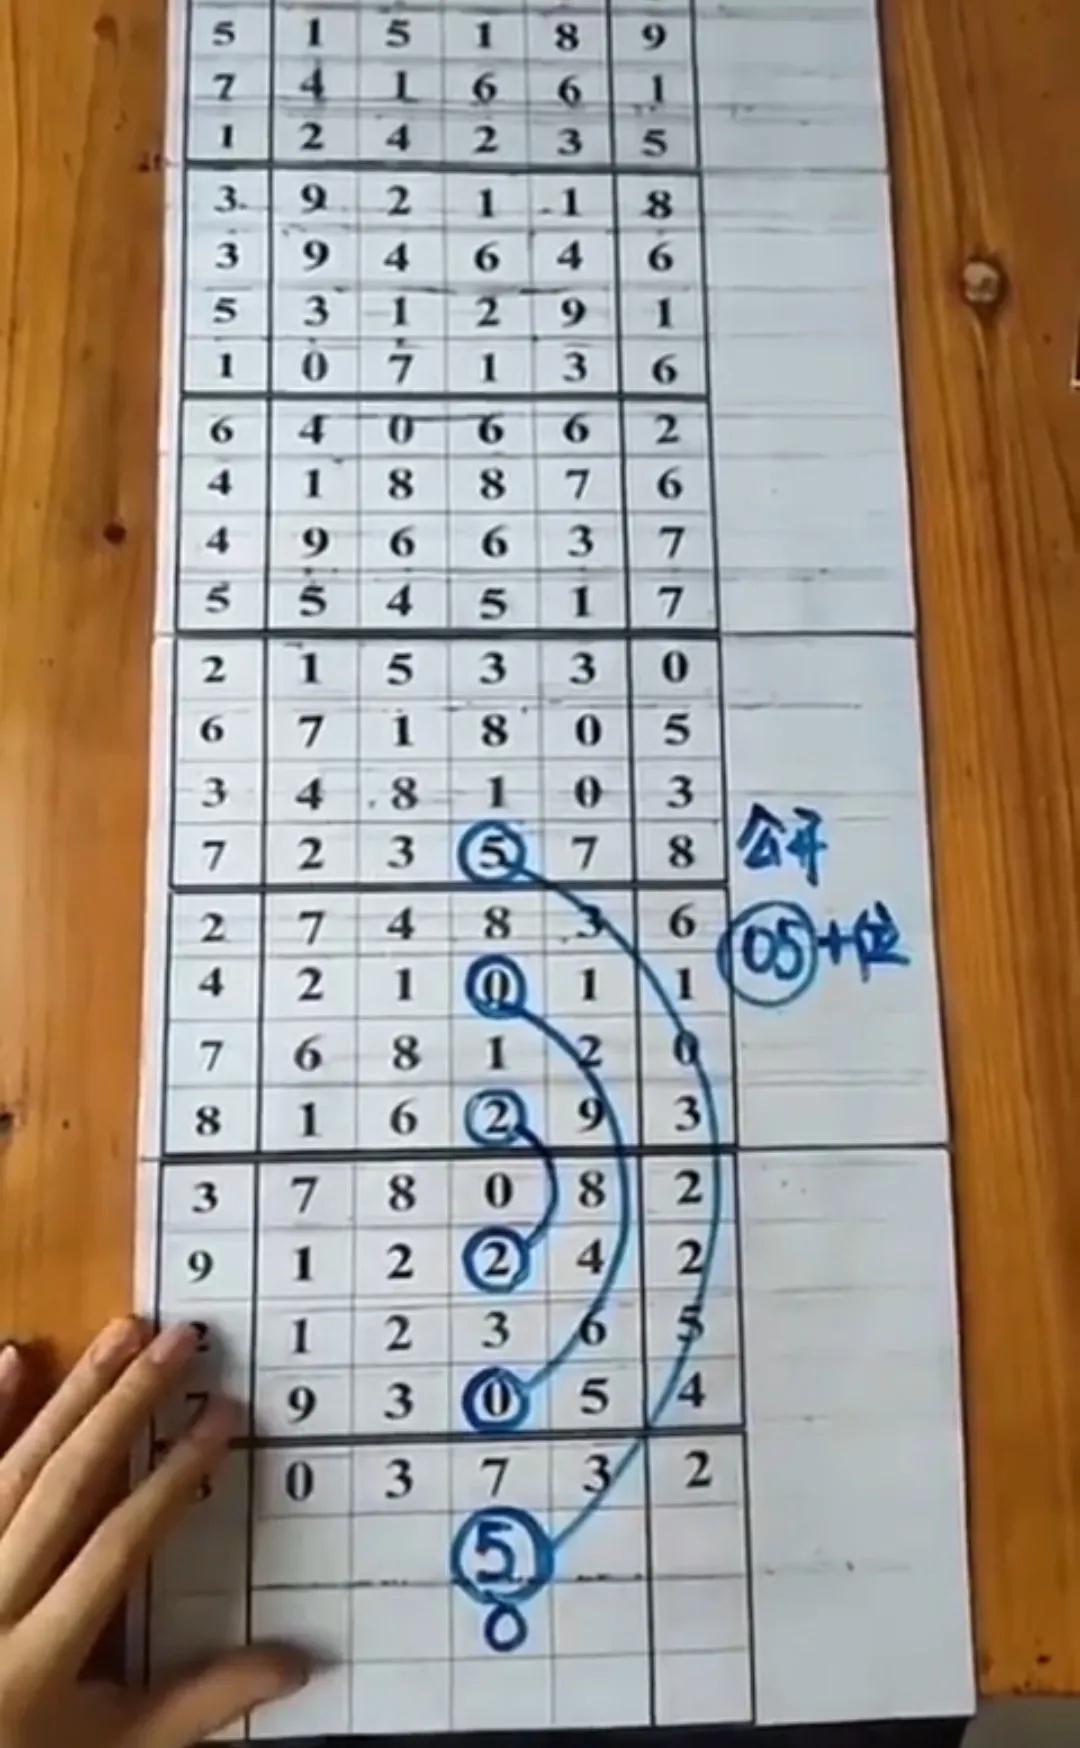 5 1 5 1 8 9
7 4 1 6 6 1
1 2 4 2 3 5
3 9 2 1 1 8
3 9 4 6 4 6
5 3 1 2 9 1
1 0 7 1 3 6
6 4 0 6 6 2
4 1 8 8 7 6
4 9 6 6 3 7
5 5 4 5 1 7
2 1 5 3 3 0
6 7 1 8 0 5
3 4 8 1 0 3
7 2 3 5 7 8 公开
2 7 4 8 3 6 05+位
4 2 1 0 1 1
7 6 8 1 2 0
8 1 6 2 9 3
3 7 8 0 8 2
9 1 2 2 4 2
2 1 2 3 6 5
7 9 3 0 5 4
0 3 7 3 2
5
0